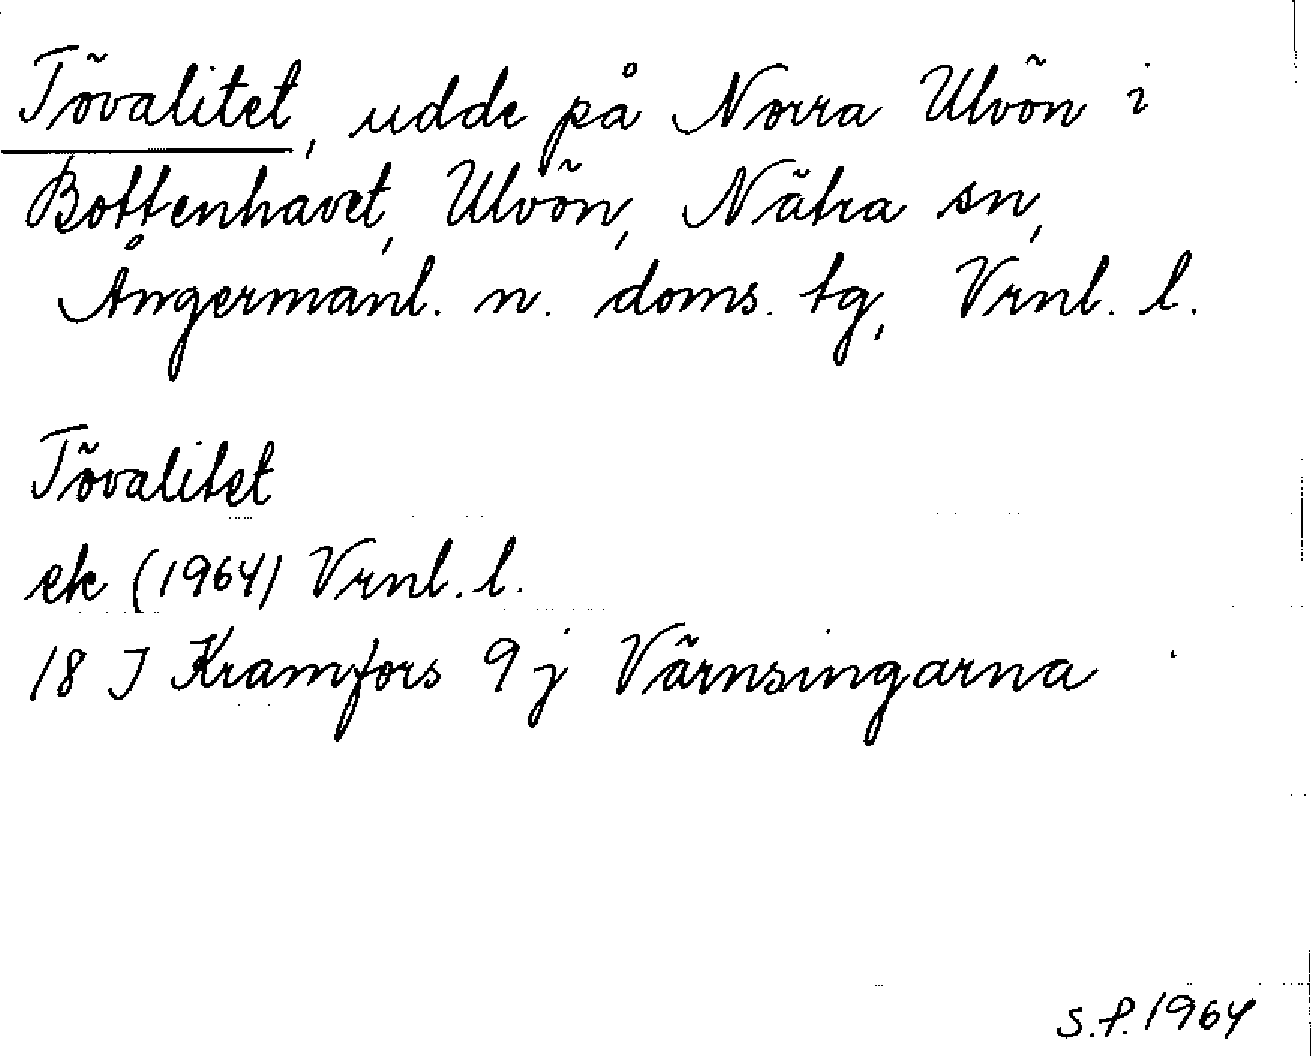 Tövalitet, udde på Norra Ulvön i
Bottenhavet, Ulvön, Nätra sn,
Ångermanl. n. doms. tg, Vrnl. l.
Tövalitet
ek (1964) Vrnl. l.
18 J Kramfors 9 j Värnsingarna
S.P. 1964